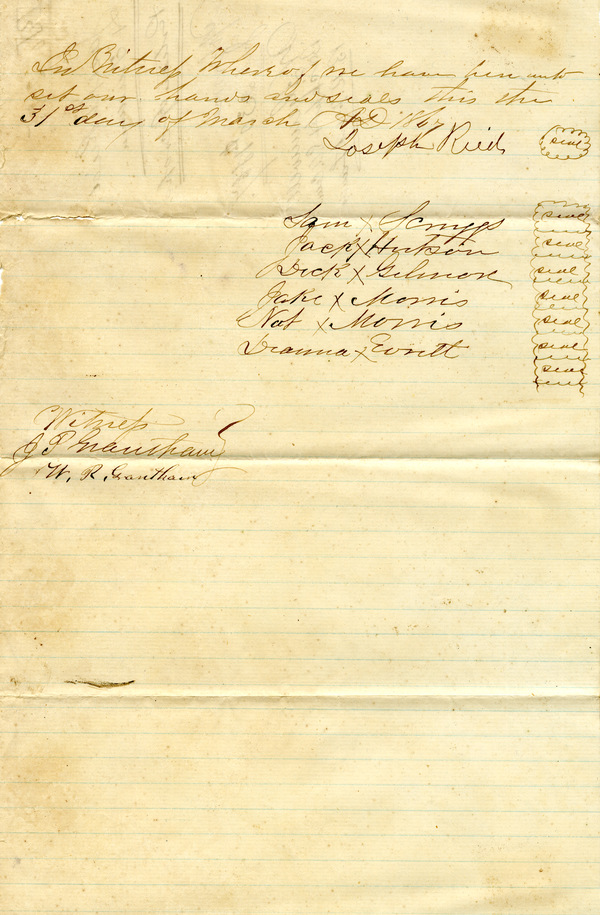 In Witness Whereof we have here unto
set our hands and seales this the
31st day of March AD 1867
Joseph Ried seal
Sam X Scruggs seal
Jack X Hutson seal
Dick X Gilmore seal
Jake X Morris seal
Nat X Morris seal
Dianna X Evritt seal
seal
Witness
J P Grantham
W. R. Grantham